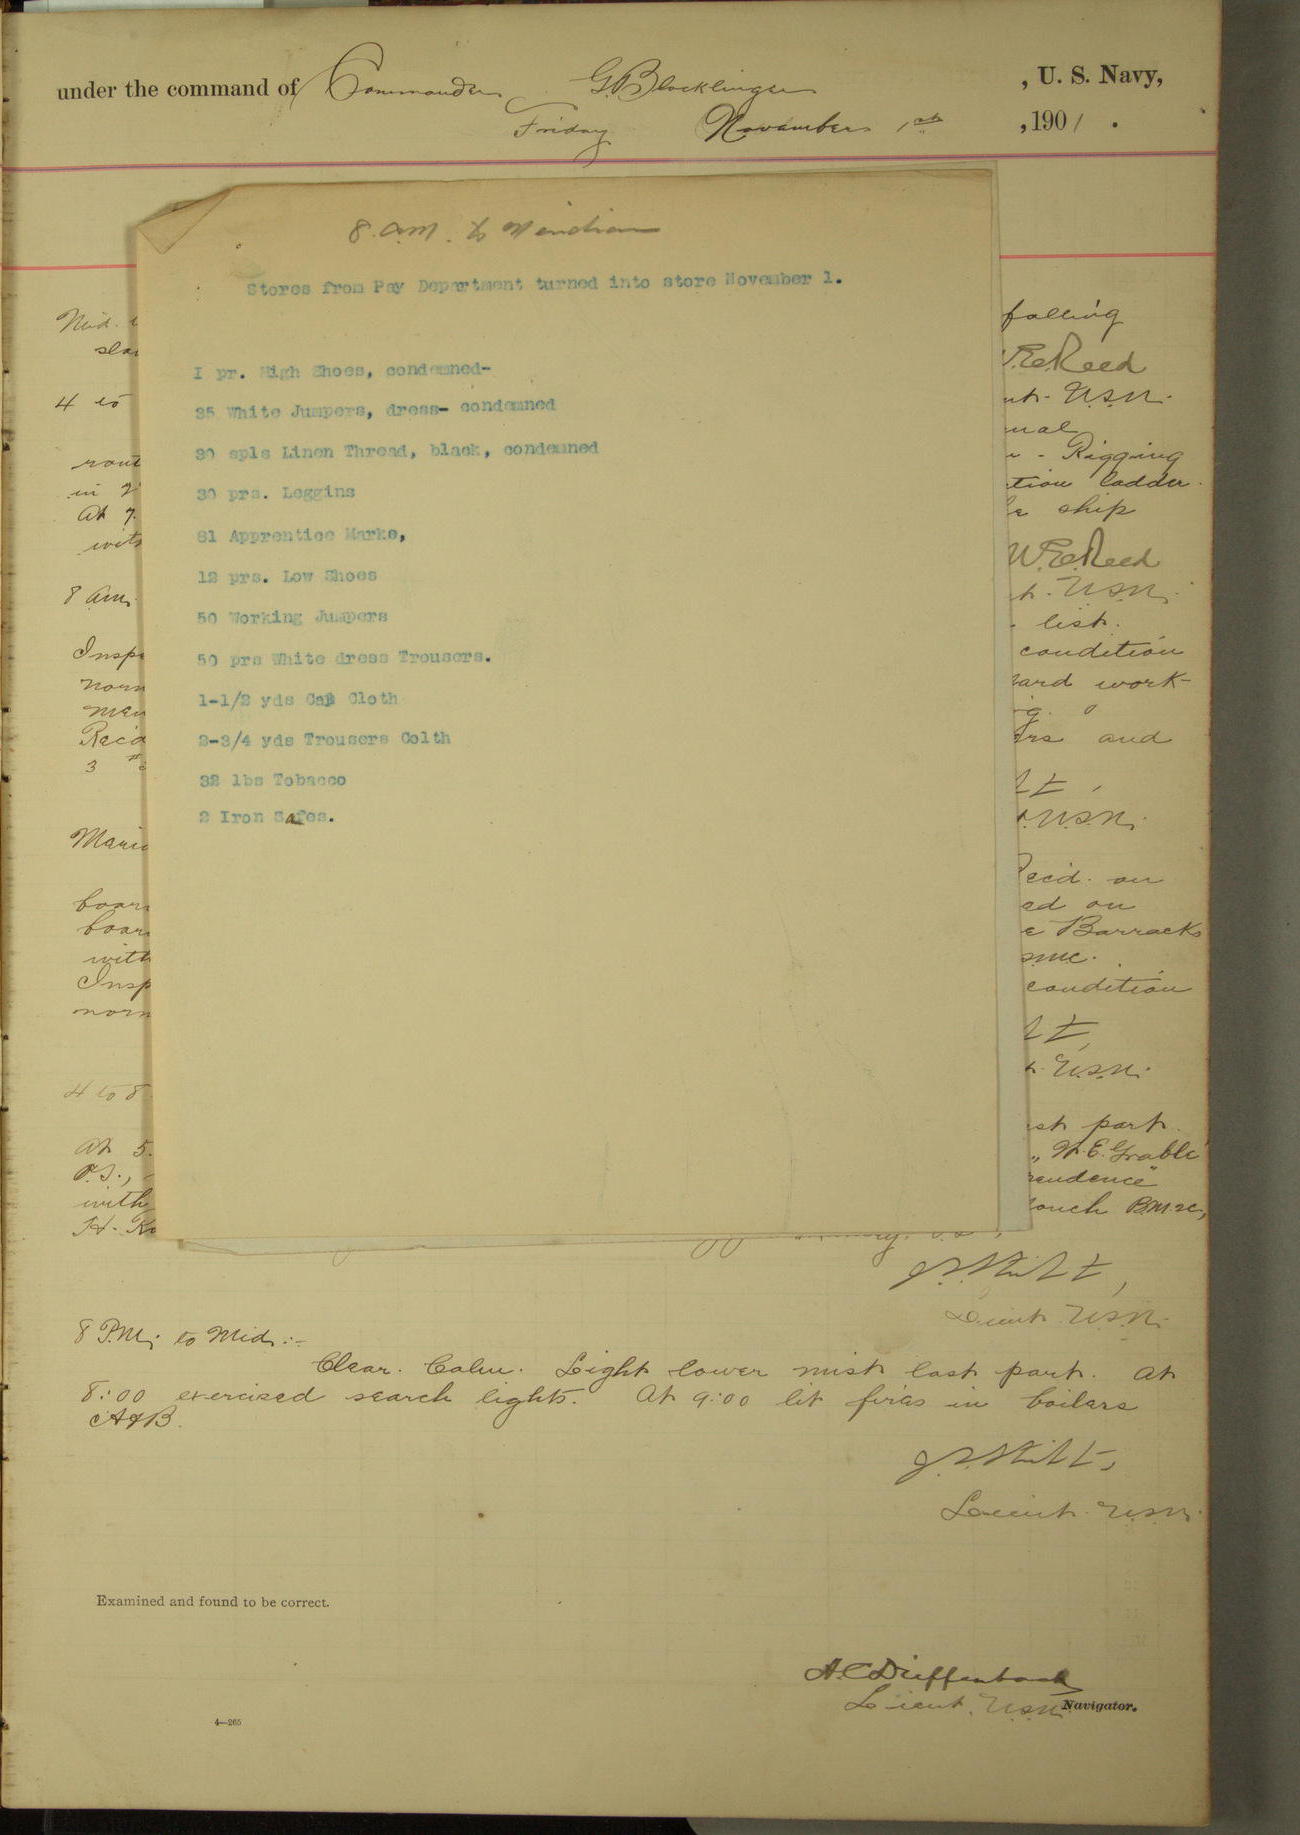 under the command of Commander G. Blocklinger, U. S. Navy,
Friday November 1st, 1901.
8. a.m. to Meridian
Stores from Pay Department turned into store November 1.
I pr. High Shoes, condemned-
35 White Jumpers, dress- condemned
30 spls Linen Thread, black, condemned
30 prs. Leggins
81 Apprentice Marks,
12 prs. Low Shoes
50 Working Jumpers
50 prs White dress Trousers.
1-1/2 yds Cap Cloth
2-3/4 yds Trousers Colth
32 lbs Tobacco
2 Iron Safes.
Mid.
4 to
in
At 7.
8 am.
3
4 to 8
At 5.
P.S.,
with
falling
W.E. Reed
U.S.N.
Rigging
ladder.
ship
W.E. Reed
U.S.N.
list.
condition
work-
and
U.S.N.
on
on
Barracks
condition
U.S.N.
part.
W. E. Grable
B.M. 2c,
Lieut. U.S.N.
8 P.M. to Mid:-
Clear. Calm. Light lower mist last part. At
8:00 exercised search lights. At 9:00 lit fires in boilers
A & B.
Lieut. U.S.N.
Examined and found to be correct.
A. C. Dieffenbach
Lieut. U.S.N. Navigator.
4—265